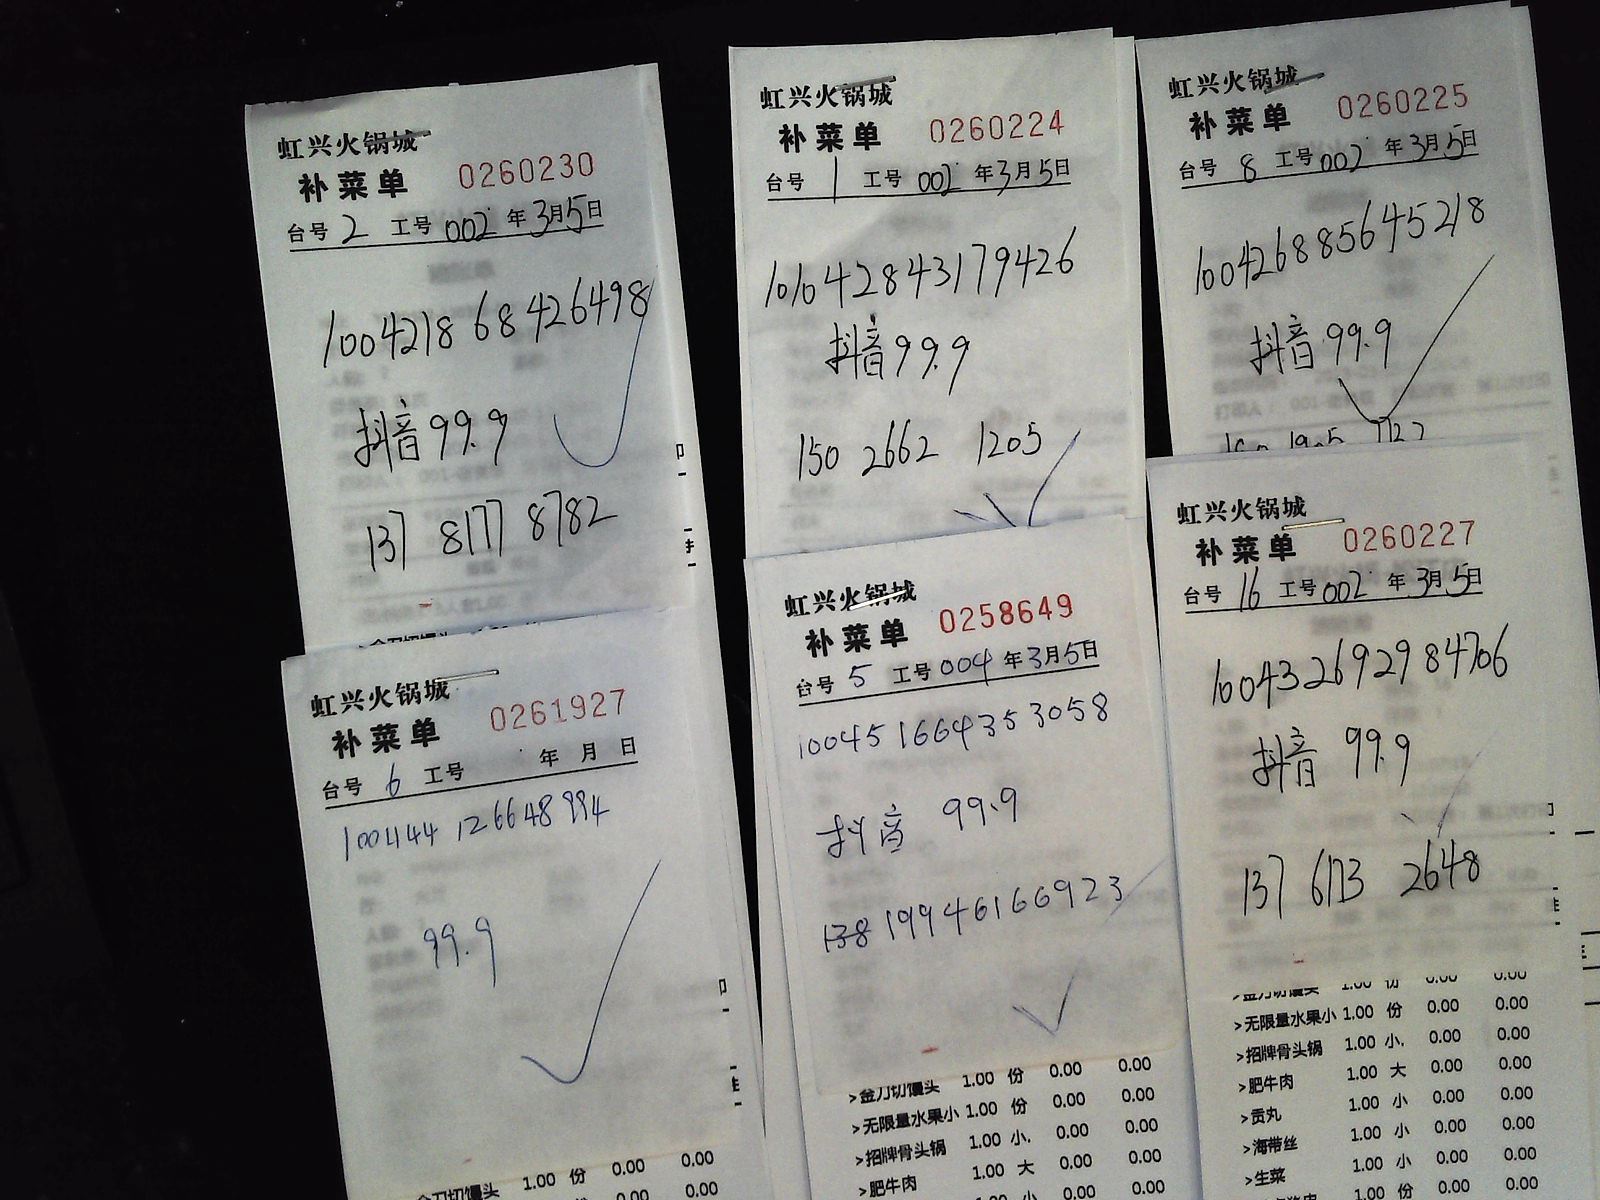 虹兴火锅城
补菜单 0260230
台号 2 工号 002 年 3月5日
100421868426498
抖音 99.9
137 8177 8782
虹兴火锅城
补菜单 0260224
台号 1 工号 002 年 3月5日
101042843179426
抖音 99.9
150 2662 1205
虹兴火锅城
补菜单 0260225
台号 8 工号 002 年 3月5日
100426885645218
抖音 99.9
虹兴火锅城
补菜单 0261927
台号 6 工号 年 月 日
100444126648994
99.9
金刀切馒头 1.00 份 0.00 0.00
虹兴火锅城
补菜单 0258649
台号 5 工号 004 年 3月5日
100451664353058
抖音 99.9
138 19994616 6923
>金刀切馒头 1.00 份 0.00 0.00
>无限量水果小 1.00 份 0.00 0.00
>招牌骨头锅 1.00 小. 0.00 0.00
>肥牛肉 1.00 大 0.00 0.00
虹兴火锅城
补菜单 0260227
台号 16 工号 002 年 3月5日
100432692984706
抖音 99.9
137 6173 2648
>金刀切馒头 1.00 份 0.00 0.00
>无限量水果小 1.00 份 0.00 0.00
>招牌骨头锅 1.00 小. 0.00 0.00
>肥牛肉 1.00 大 0.00 0.00
>贡丸 1.00 小 0.00 0.00
>海带丝 1.00 小 0.00 0.00
>生菜 1.00 小 0.00 0.00
1.00 份 0.00 0.00